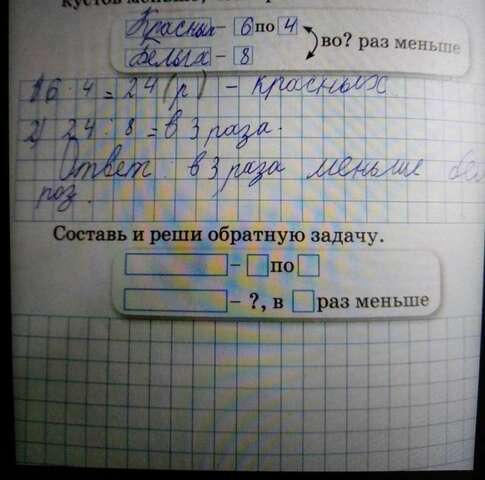 кустов меньше,
Красных – 6 по 4
Белых – 8
во? раз меньше
1) 6 · 4 = 24 (р) – красных
2) 24 : 8 = в 3 раза.
Ответ: в 3 раза меньше бел
роз.
Составь и реши обратную задачу.
– по
– ?, в раз меньше